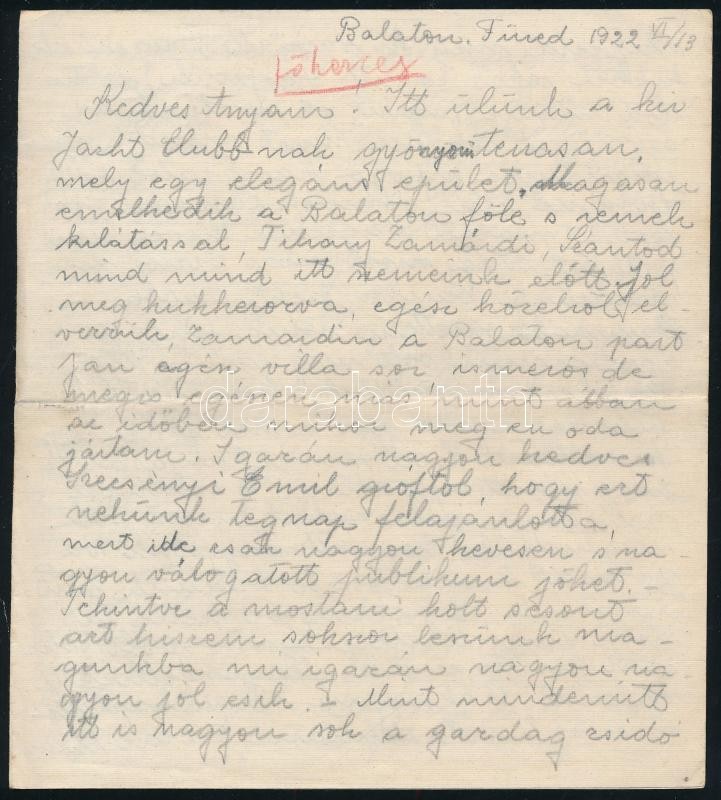 Balaton. Füred 1922 VI/13
főherceg
Kedves Anyám! Itt ülünk a kir
Jacht Clubb-nak gyönyörü terrasan,
mely egy elegáns epület, Magasan
emelkedik a Balaton fölé s remek
kilátással, Tihany Zamárdi, Szántod
mind mind itt szemeink előtt. Jol
meg kukkerozva, egész közelröl el-
verzik, Zamárdin a Balaton part
ján egész villa sor ismerős de
mégis egészen más, mint abban
az időben mikor meg én oda
jártam. Igazán nagyon kedves
Szecsényi Emil gróftól, hogy ezt
nekünk tegnap felajánlotta,
mert ide csak nagyon kevesen s na-
gyon válogatott publikum jöhet. -
Tekintve a mostani holt sesont
azt hiszem sokszor leszünk ma-
gunkba mi igazán nagyon na-
gyon jól esik. - Mint mindenütt
itt is nagyon sok a gazdag zsidó
darabanth.com